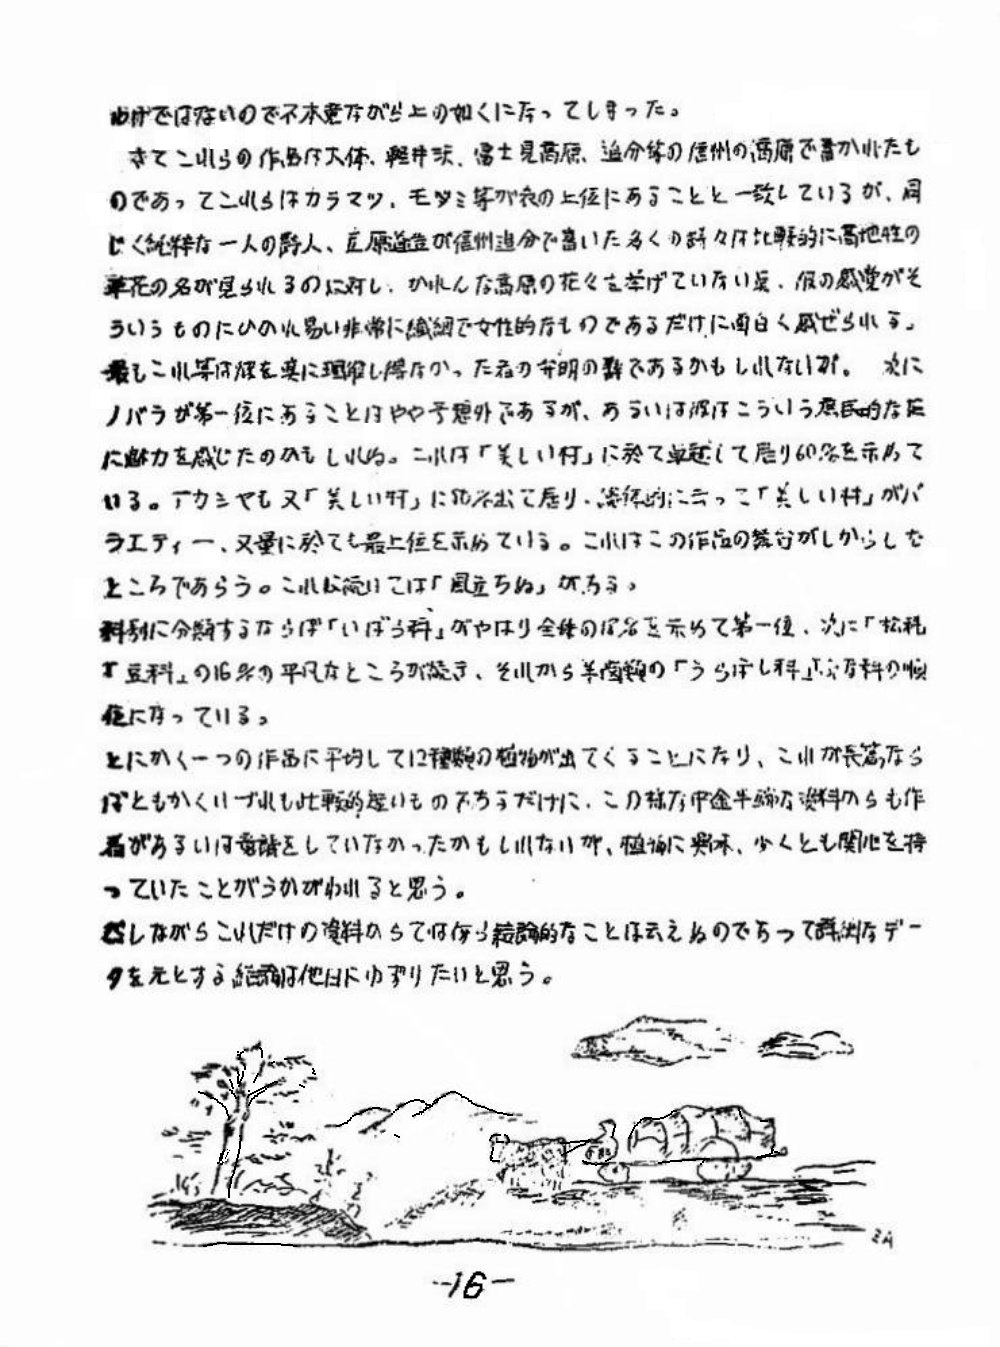 わけではないので不本意ながら上の如くになってしまった。
さてこれらの作品は大体、軽井沢、富士見高原、追分等の信州の高原で書かれたも
のであってこれらはカラマツ、モミ等が表の上位にあることと一致しているが、同
じく純粋な一人の詩人、立原道造が信州追分で書いた多くの詩々は比較的に高地性の
草花の名が見られるのに対し、かれんな高原の花々を挙げていない点、彼の感覚がそ
ういうものにひかれ易い非常に繊細で女性的なものであるだけに面白く感ぜられる。
最もこれ等は彼を真に理解し得なかった者の弁明の弊であるかもしれないが。 次に
ノバラが第一位にあることはやや予想外であるが、あるいは彼はこういう庶民的な花
に魅力を感じたのかもしれぬ。これは「美しい村」に於て卓越して居り60%を示めて
いる。アカシヤも又「美しい村」に出て居り、全体的に云って「美しい村」がバ
ラエティー、又量に於ても最上位を示めている。これはこの作品の舞台がしからしむ
ところであらう。これに続いては「風立ちぬ」がある。
科別に分類するならば「いばら科」がやはり全体の%を示めて第一位、次に「松科
「豆科」の16%の平凡なところが続き、それから羊歯類の「うらぼし科」ぶな科の順
位になっている。
とにかく一つの作品に平均して12種類の植物が出てくることになり、これが長篇なら
ばともかくいづれも比較的短いものであるだけに、この様な中途半端な資料からも作
者があるいは意識をしていなかったかもしれないが、植物に興味、少くとも関心を持
っていたことがうかがわれると思う。
しかしながらこれだけの資料からでは何ら結論的なことは云えぬのであって詳細なデー
タを元とする結論は他日にゆずりたいと思う。
-16-